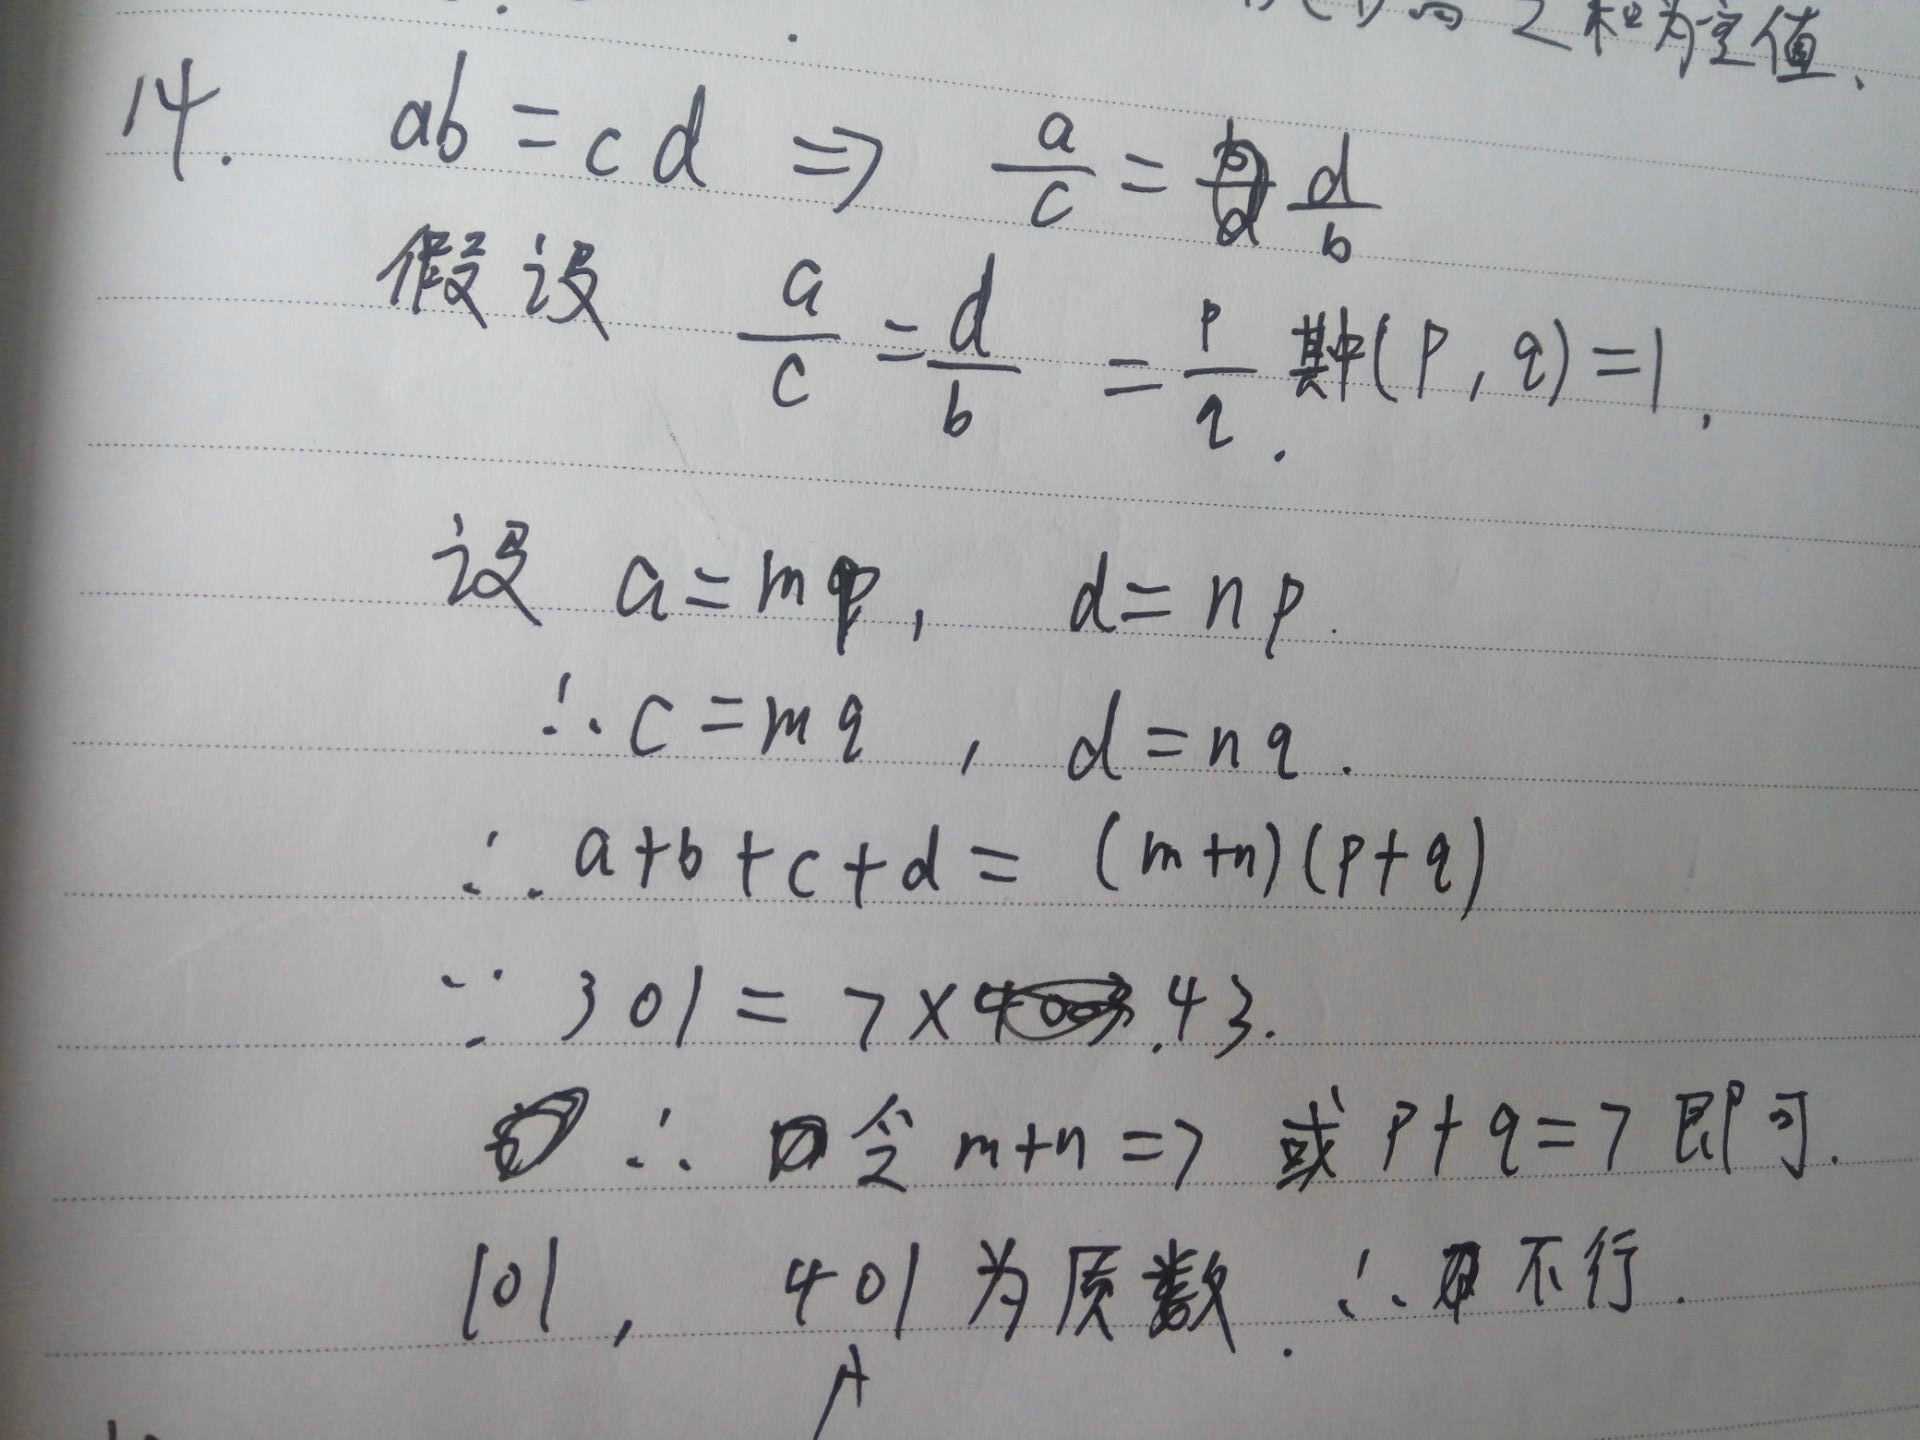 之和为定值、
14. ab = cd ⇒ a/c = d/b
假设 a/c = d/b = p/q. 其中(p, q)=1.
设 a=mp, d=np.
∴ c=mq , d=nq.
∴ a+b+c+d = (m+n)(p+q)
∵ 301 = 7×43.
∴ 令 m+n=7 或 p+q=7 即可.
101, 401 为质数. ∴ 不行.